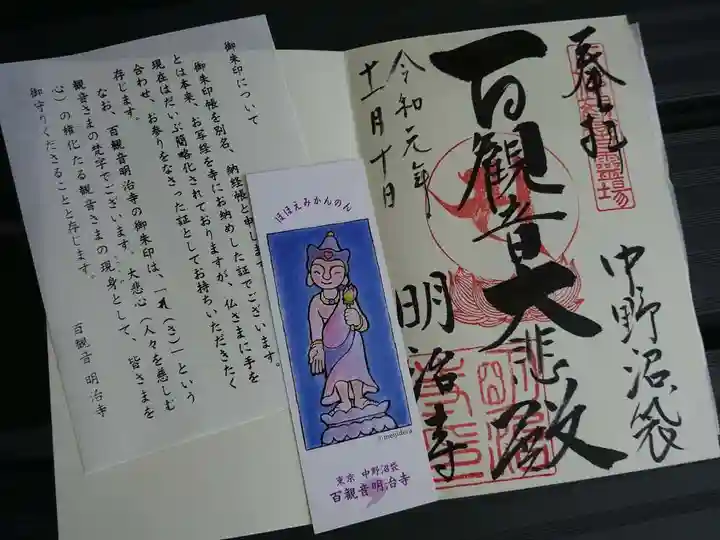 奉拝
百観音霊場
中野沼袋
百観音大悲殿
明治寺
令和元年
十一月十日
御朱印について
御朱印帳を別名、納経帳と申します
とは本来、お写経を寺にお納めした証でございます。
現在はだいぶ簡略化されておりますが、仏さまに手を
合わせ、お参りをなさった証としてお持ちいただきたく
存じます。
なお、百観音明治寺の御朱印は、「（さ）」という
観音さまの梵字でございます。大悲心（人々を慈しむ
心）の権化たる観音さまの現身として、皆さまを
御守りくださることと存じます。
百観音 明治寺
ほほえみかんのん
©meijidera
東京 中野沼袋
百観音明治寺